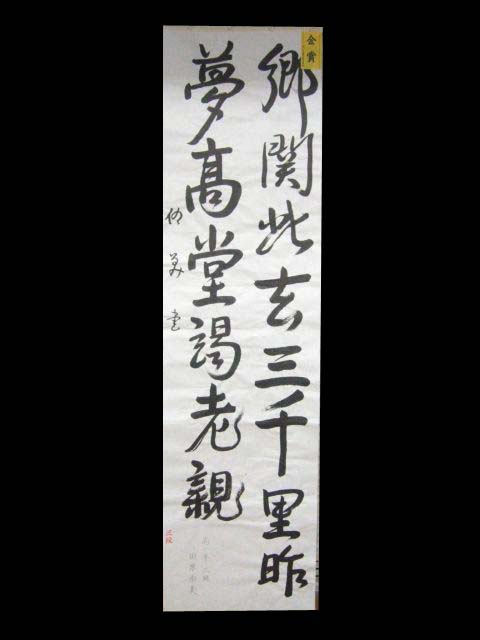 金賞
鄕関此去三千里昨
夢高堂謁老親
三段